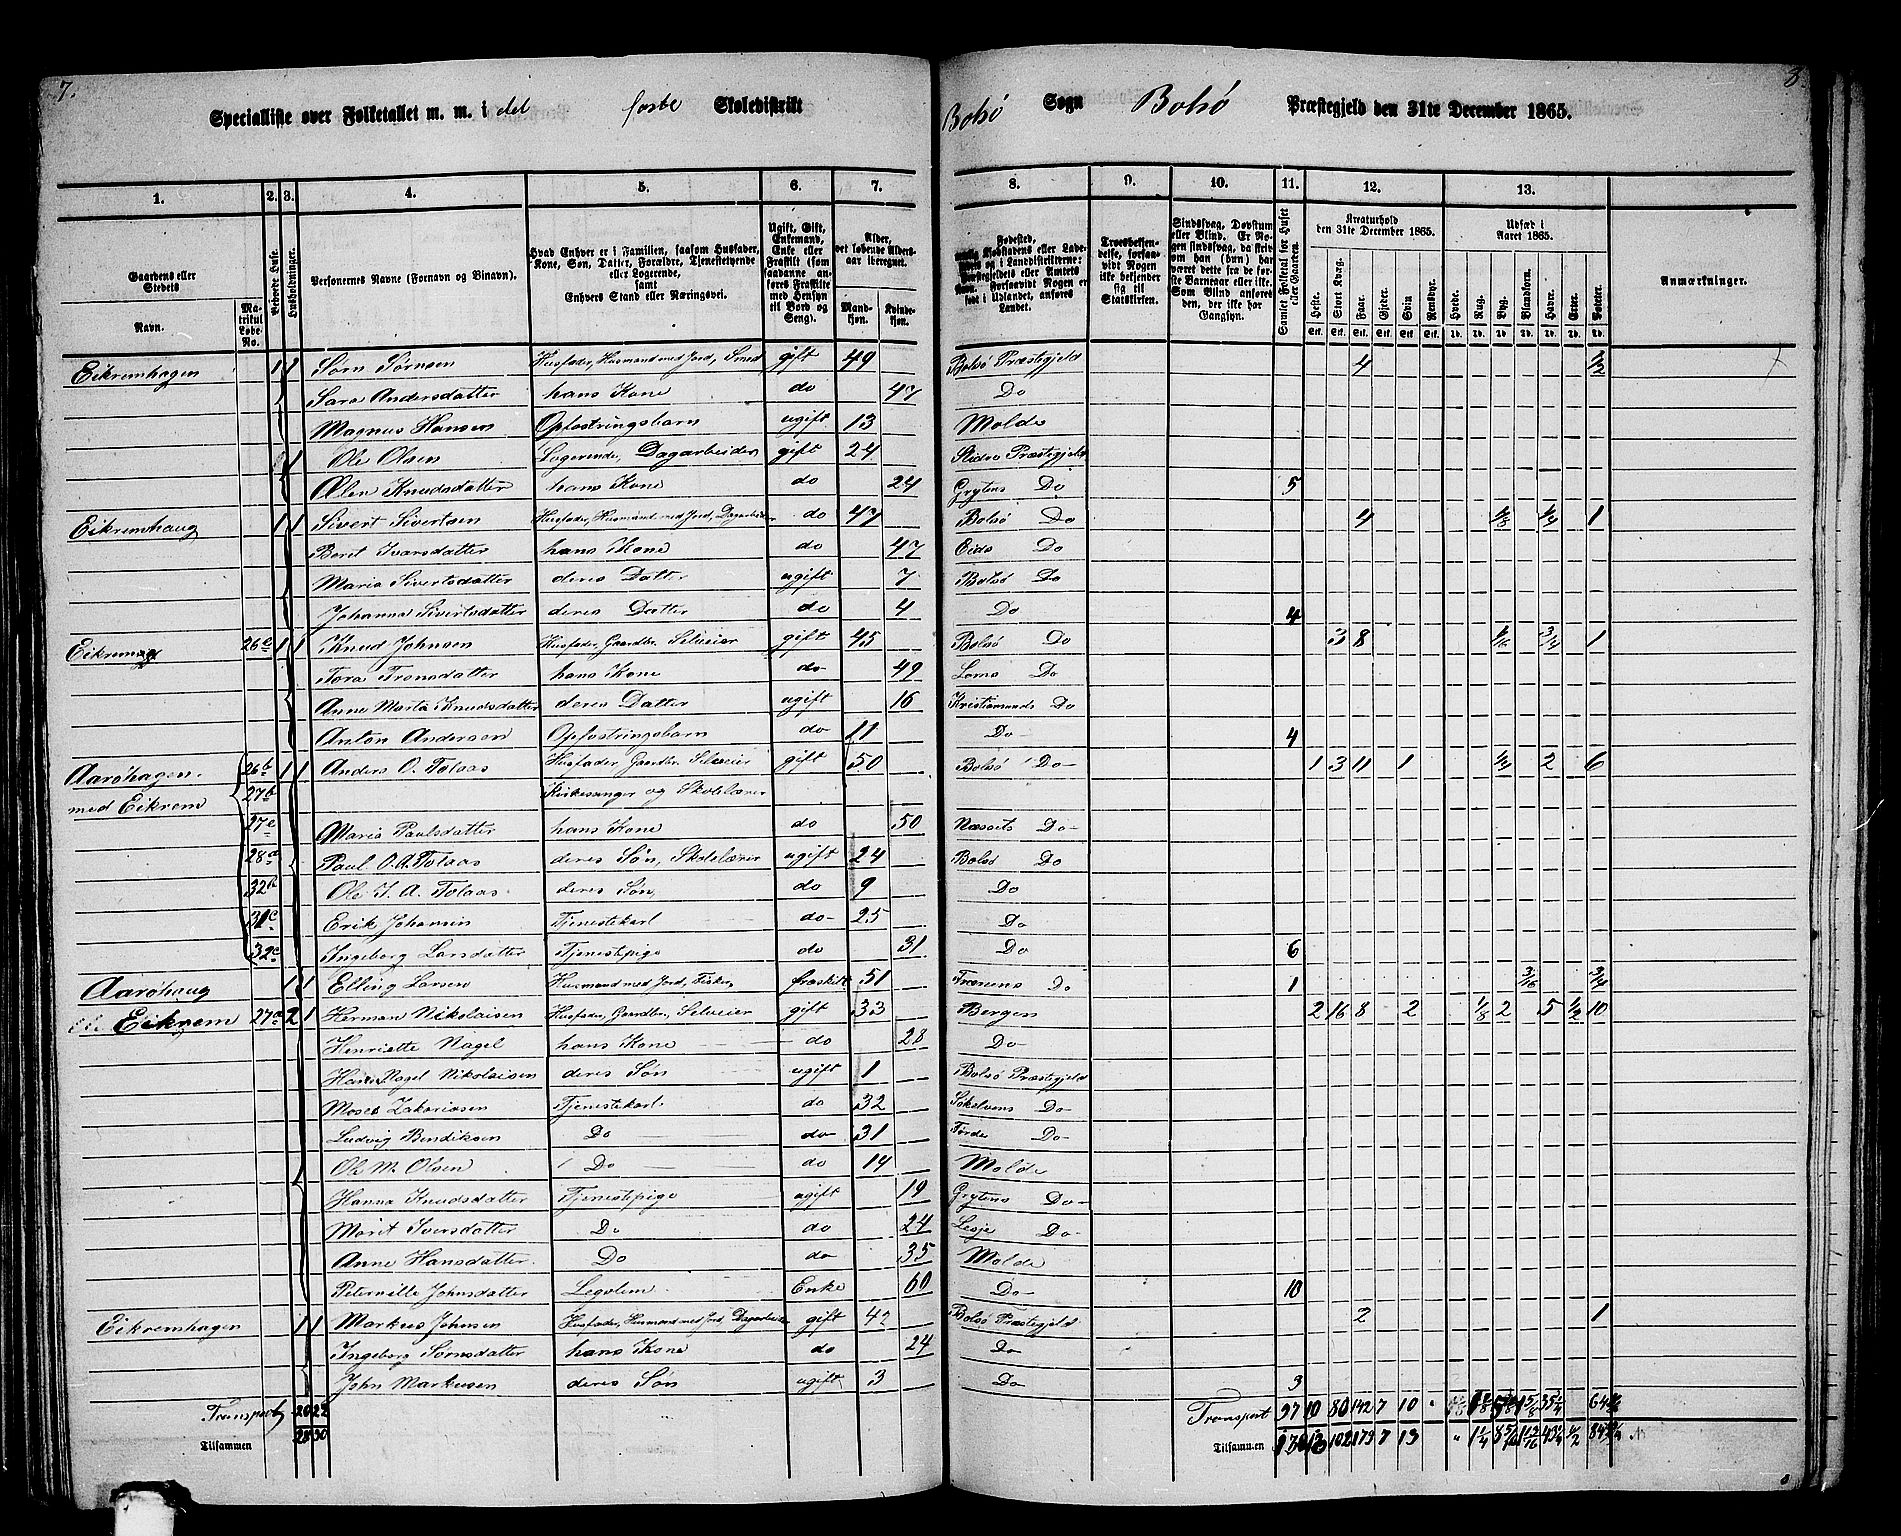 7.
8
Specialliste over Folketallet m. m. i det første Skoledistrikt Bolsø Sogn Bolsø Præstegjeld den 31te December 1865.
1. 2. 3. 4. 5. 6. 7. 8. 9. 10. 11. 12. 13.
Gaardens eller Stedets Navn. Matrikul Løbe-No. Beboede Huse. Husholdninger. Personernes Navne (Fornavn og Tilnavn). Hvad Enhver er i Familien, saasom Husfader, Kone, Søn, Datter, Forældre, Tjenestetyende eller Logerende, samt Enhvers Stand eller Næringsvei. Ugift, Gift, Enkemand, Enke eller Fraskilt (som saadanne anføres Fraskilte med Hensyn til Bord og Seng). Alder, det løbende Aldersaar iberegnet. Mandkjøn. Kvindekjøn.
Anmærkninger.
Kreaturhold den 31te December 1865. Udsæd i Aaret 1865.
Eikremhagen 1 1 Sørn Sørnsen Husfader, Husmand med Jord, Smed gift 49 Bolsø Præstegjeld 4 1/2
Sara Andersdatter hans Kone do 47 Do
Magnus Hansen Opfostringsbarn ugift 13 Molde
1 Ole Olsen Logerende, Dagarbeider gift 24 Slidre Præstegjeld
Olen Knudsdatter hans Kone do 24 Grytens Do 5
Eikremhaug 1 1 Sivert Sivertsen Husfader, Husmand med Jord, Dagarbeider do 47 Bolsø Do 4 1/8 1/4 1
Beret Ivarsdatter hans Kone do 47 Eids Do
Maria Sivertsdatter deres Datter ugift 7 Bolsø Do
Johanna Sivertsdatter deres Datter do 4 Do 4
Eikrem 26c 1 1 Knud Johnsen Husfader, Gaardbr. Selveier gift 45 Bolsø Do 3 8 1/16 3/4 1
Tora Tronsdatter hans Kone do 49 Loms Do
Anne Marta Knudsdatter deres Datter ugift 16 Kristiansunds Do
Anton Andersen Opfostringsbarn do 11 Do 4
Aarøhagen 26b 1 1 Anders O. Tolaas Husfader, Gaardbr. Selveier gift 50 Bolsø Do 1 3 11 1 1/2 2 6
med Eikrem 27b Kirkesanger og Skolelærer
27e Maria Paulsdatter hans Kone do 50 Næssets Do
28a Paul O. A. Tolaas deres Søn, Skolelærer ugift 24 Bolsø Do
32b Ole I. A. Tolaas deres Søn, do 9 Do
31c Erik Johansen Tjenestekarl do 25 Do
32c Ingeborg Larsdatter Tjenestepige do 31 Do 6
Aarøhaug 1 1 Elling Larsen Husmand med Jord, Fisker fraskilt 51 Frænens Do 1 3/16 3/4
Eikrem 27a 2 1 Herman Nikolaisen Husfader, Gaardbr. Selveier gift 33 Bergen 2 16 8 2 1/8 2 5 1/2 10
Henriette Nagel hans Kone do 28 Do
Hans Nagel Nikolaisen deres Søn ugift 1 Bolsø Præstegjeld
Moses Zakariasen Tjenestekarl do 32 Do
Ludvig Bendiksen Do do 31 Førde Do
Ole M. Olsen Do do 14 Molde
Hanna Knudsdatter Tjenestepige ugift 19 Grytens Do
Marit Iversdatter Do do 24 Lesje Do
Anne Hansdatter Do do 35 Molde
Peternille Johnsdatter Legdlem Enke 60 Do 10
Eikremhagen 1 1 Markus Johnsen Husfader, Husmand med Jord, Dagarbeider gift 42 Bolsø Præstegjeld 2 1
Ingeborg Sørnsdatter hans Kone do 24 Do
John Markusen deres Søn ugift 3 Do 3
Transport 20 22 Transport 10 80 142 7 10
Tilsammen 28 30 Tilsammen 13 102 179 7 13